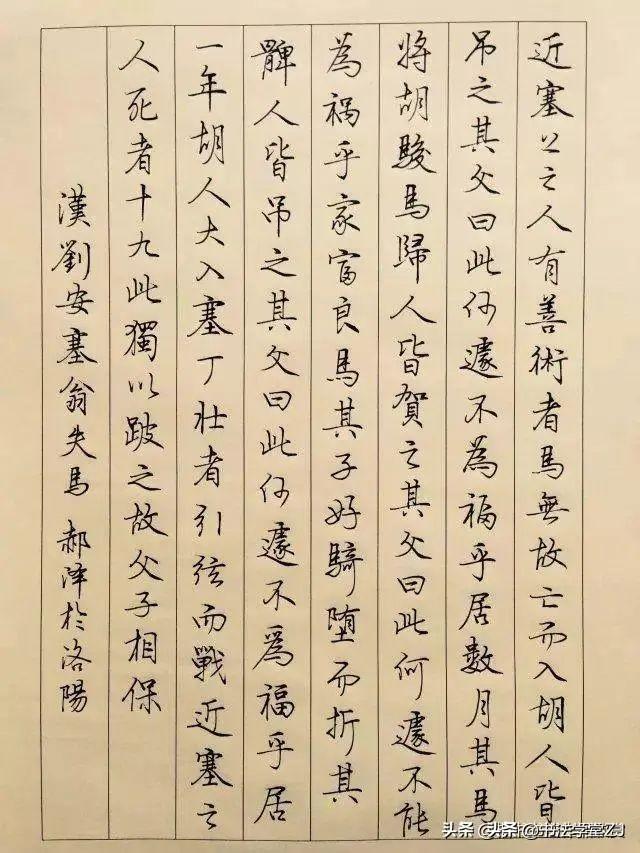 近塞上之人有善術者馬無故亡而入胡人皆
吊之其父曰此何遽不為福乎居數月其馬
將胡駿馬歸人皆賀之其父曰此何遽不能
為禍乎家富良馬其子好騎墮而折其
髀人皆吊之其父曰此何遽不為福乎居
一年胡人大入塞丁壯者引弦而戰近塞之
人死者十九此獨以跛之故父子相保
漢劉安塞翁失馬 郝泽於洛陽
头条
头条 @书法学堂ZJ